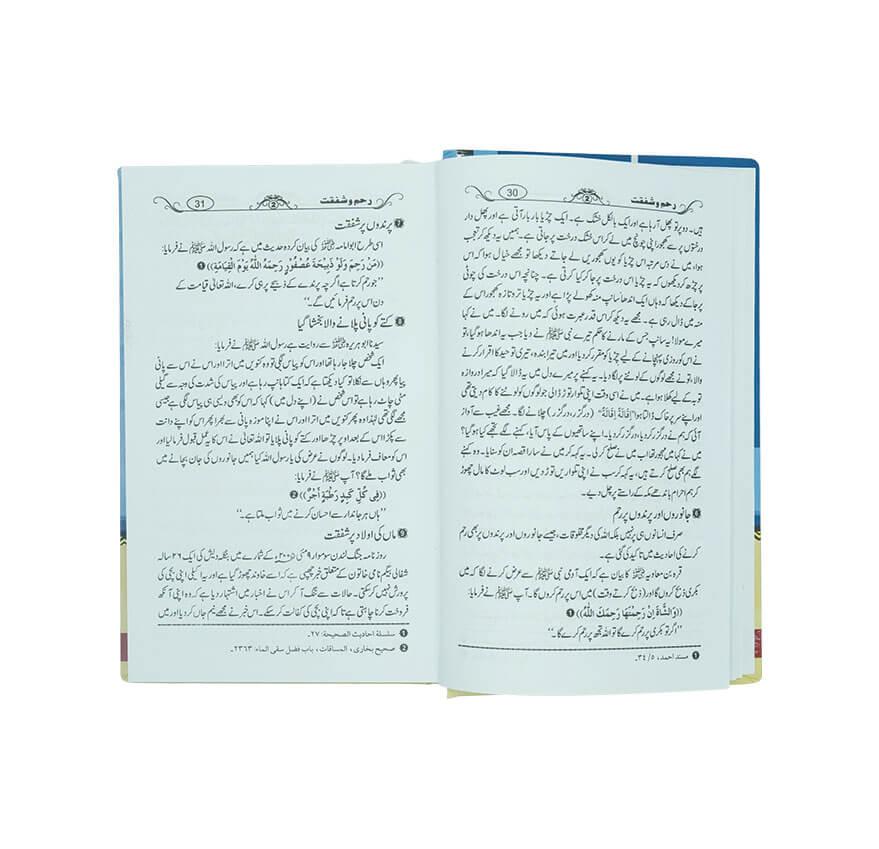 رحم و شفقت 2 30
ہیں۔ دو پر تو پھل آ رہا ہے اور ایک بالکل خشک ہے۔ ایک چڑیا بار بار آتی ہے اور پھل دار
درختوں پر سے کھجور اپنی چونچ میں لے کر اس خشک درخت پر جاتی ہے۔ ہمیں یہ دیکھ کر تعجب
ہوا، میں نے دس مرتبہ اس چڑیا کو یوں کھجوریں لے جاتے دیکھا تو مجھے خیال ہوا کہ اس
پر چڑھ کر دیکھوں کہ یہ چڑیا اس درخت پر جا کر کیا کرتی ہے۔ چنانچہ اس درخت کی چوٹی
پر جا کے دیکھا کہ وہاں ایک اندھا سانپ منہ کھولے پڑا ہے اور یہ چڑیا تر و تازہ کھجور اس کے
منہ میں ڈال رہی ہے۔ مجھے یہ دیکھ کر اس قدر عبرت ہوئی کہ میں رونے لگا۔ میں نے کہا
میرے مولا! یہ سانپ جس کے مارنے کا حکم تیرے نبی ﷺ نے دیا جب یہ اندھا ہو گیا، تو
نے اس کو روزی پہنچانے کے لیے چڑیا کو مقرر کر دیا اور میں تیرا بندہ، تیری توحید کا اقرار کرنے
والا، تو نے مجھے لوگوں کے لوٹنے پر لگا دیا۔ یہ کہنے پر میرے دل میں یہ ڈالا گیا کہ میرا دروازہ
توبہ کے لیے کھلا ہوا ہے۔ میں نے اسی وقت اپنی تلوار توڑ ڈالی جو لوگوں کو لوٹنے کا کام دیتی تھی
اور اپنے سر پر خاک ڈالتا ہوا "إِقَالَةً إِقَالَةً" (درگزر، درگزر) چلانے لگا۔ مجھے غیب سے آواز
آئی کہ ہم نے درگزر کر دیا، درگزر کر دیا۔ اپنے ساتھیوں کے پاس آیا، کہنے لگے تجھے کیا ہو گیا؟
میں نے کہا میں مجبور تھا اب میں نے صلح کر لی۔ یہ کہہ کر میں نے سارا قصہ ان کو سنایا۔ وہ کہنے
لگے ہم بھی صلح کرتے ہیں، یہ کہہ کر سب نے اپنی تلواریں توڑ دیں اور سب لوٹ کا مال چھوڑ
کر ہم احرام باندھ کے مکہ کے راستے پر چل دیے۔
جانوروں اور پرندوں پر رحم
صرف انسانوں ہی پر نہیں بلکہ اللہ کی دیگر مخلوقات، جیسے جانوروں اور پرندوں پر بھی رحم
کرنے کی احادیث میں تاکید کی گئی ہے۔
قرہ بن معاویہ کا بیان ہے کہ ایک آدمی نبی ﷺ سے عرض کرنے لگا کہ میں
بکری ذبح کروں گا اور (ذبح کرتے وقت) میں اس پر رحم کروں گا۔ آپ ﷺ نے فرمایا:
((وَالشَّاةَ إِنْ رَحِمْتَهَا رَحِمَكَ اللّٰهُ)) 1
"اگر تو بکری پر رحم کرے گا تو اللہ تجھ پر رحم کرے گا۔"
1 مسند احمد، ۵/ ۳۴۔
رحم و شفقت 2 31
7 پرندوں پر شفقت
اسی طرح ابو امامہ کی بیان کردہ حدیث میں ہے کہ رسول اللہ ﷺ نے فرمایا:
((مَنْ رَحِمَ وَلَوْ ذَبِيحَةَ عُصْفُورٍ رَحِمَهُ اللّٰهُ يَوْمَ الْقِيَامَةِ)) 1
"جو رحم کرتا ہے اگرچہ پرندے کے ذبیحے پر ہی کرے، اللہ تعالیٰ قیامت کے
دن اس پر رحم فرمائیں گے۔"
8 کتے کو پانی پلانے والا بخشا گیا
سیدنا ابو ہریرہ سے روایت ہے رسول اللہ ﷺ نے فرمایا:
ایک شخص چلا جا رہا تھا اور اس کو پیاس لگی تو وہ کنویں میں اترا اور اس نے اس سے پانی
پیا پھر وہاں سے نکلا تو کیا دیکھتا ہے کہ ایک کتا ہانپ رہا ہے اور پیاس کی شدت کی وجہ سے گیلی
مٹی چاٹ رہا ہے تو اس شخص نے (اپنے دل میں) کہا کہ اس کو بھی ویسی ہی پیاس لگی ہے جیسی
مجھے لگی تھی لہٰذا وہ پھر کنویں میں اترا اور اس نے اپنا موزہ پانی سے بھرا پھر اس کو اپنے دانت
سے پکڑا اس کے بعد اوپر چڑھا اور کتے کو پانی پلایا تو اللہ تعالیٰ نے اس کا یہ عمل قبول فرما لیا اور
اس کو معاف فرما دیا۔ لوگوں نے عرض کی یا رسول اللہ کیا ہمیں جانوروں کی جان بچانے میں
بھی ثواب ملے گا؟ آپ ﷺ نے فرمایا:
((فِي كُلِّ كَبِدٍ رَطْبَةٍ أَجْرٌ)) 2
"ہاں ہر جاندار سے احسان کرنے میں ثواب ملتا ہے۔"
9 ماں کی اولاد پر شفقت
روزنامہ جنگ لندن سوموار ۹ مئی ۲۰۰۵ء کے شمارے میں بنگلہ دیش کی ایک ۲۶ سالہ
شفالی بیگم نامی خاتون کے متعلق خبر چھپی ہے کہ اسے خاوند چھوڑ گیا ہے اور یہ اکیلی اپنی بچی کی
پرورش نہیں کر سکتی۔ حالات سے تنگ آ کر اس نے اخبار میں اشتہار دیا ہے کہ وہ اپنی آنکھ
فروخت کرنا چاہتی ہے تا کہ اپنی بچی کی کفالت کر سکے۔ اس خبر نے مجھے نیم جاں کر دیا اور میں
1 سلسلة احادیث الصحیحة: ۲۷۔
2 صحیح بخاری، المساقات، باب فضل سقی الماء: ۲۳۶۳۔